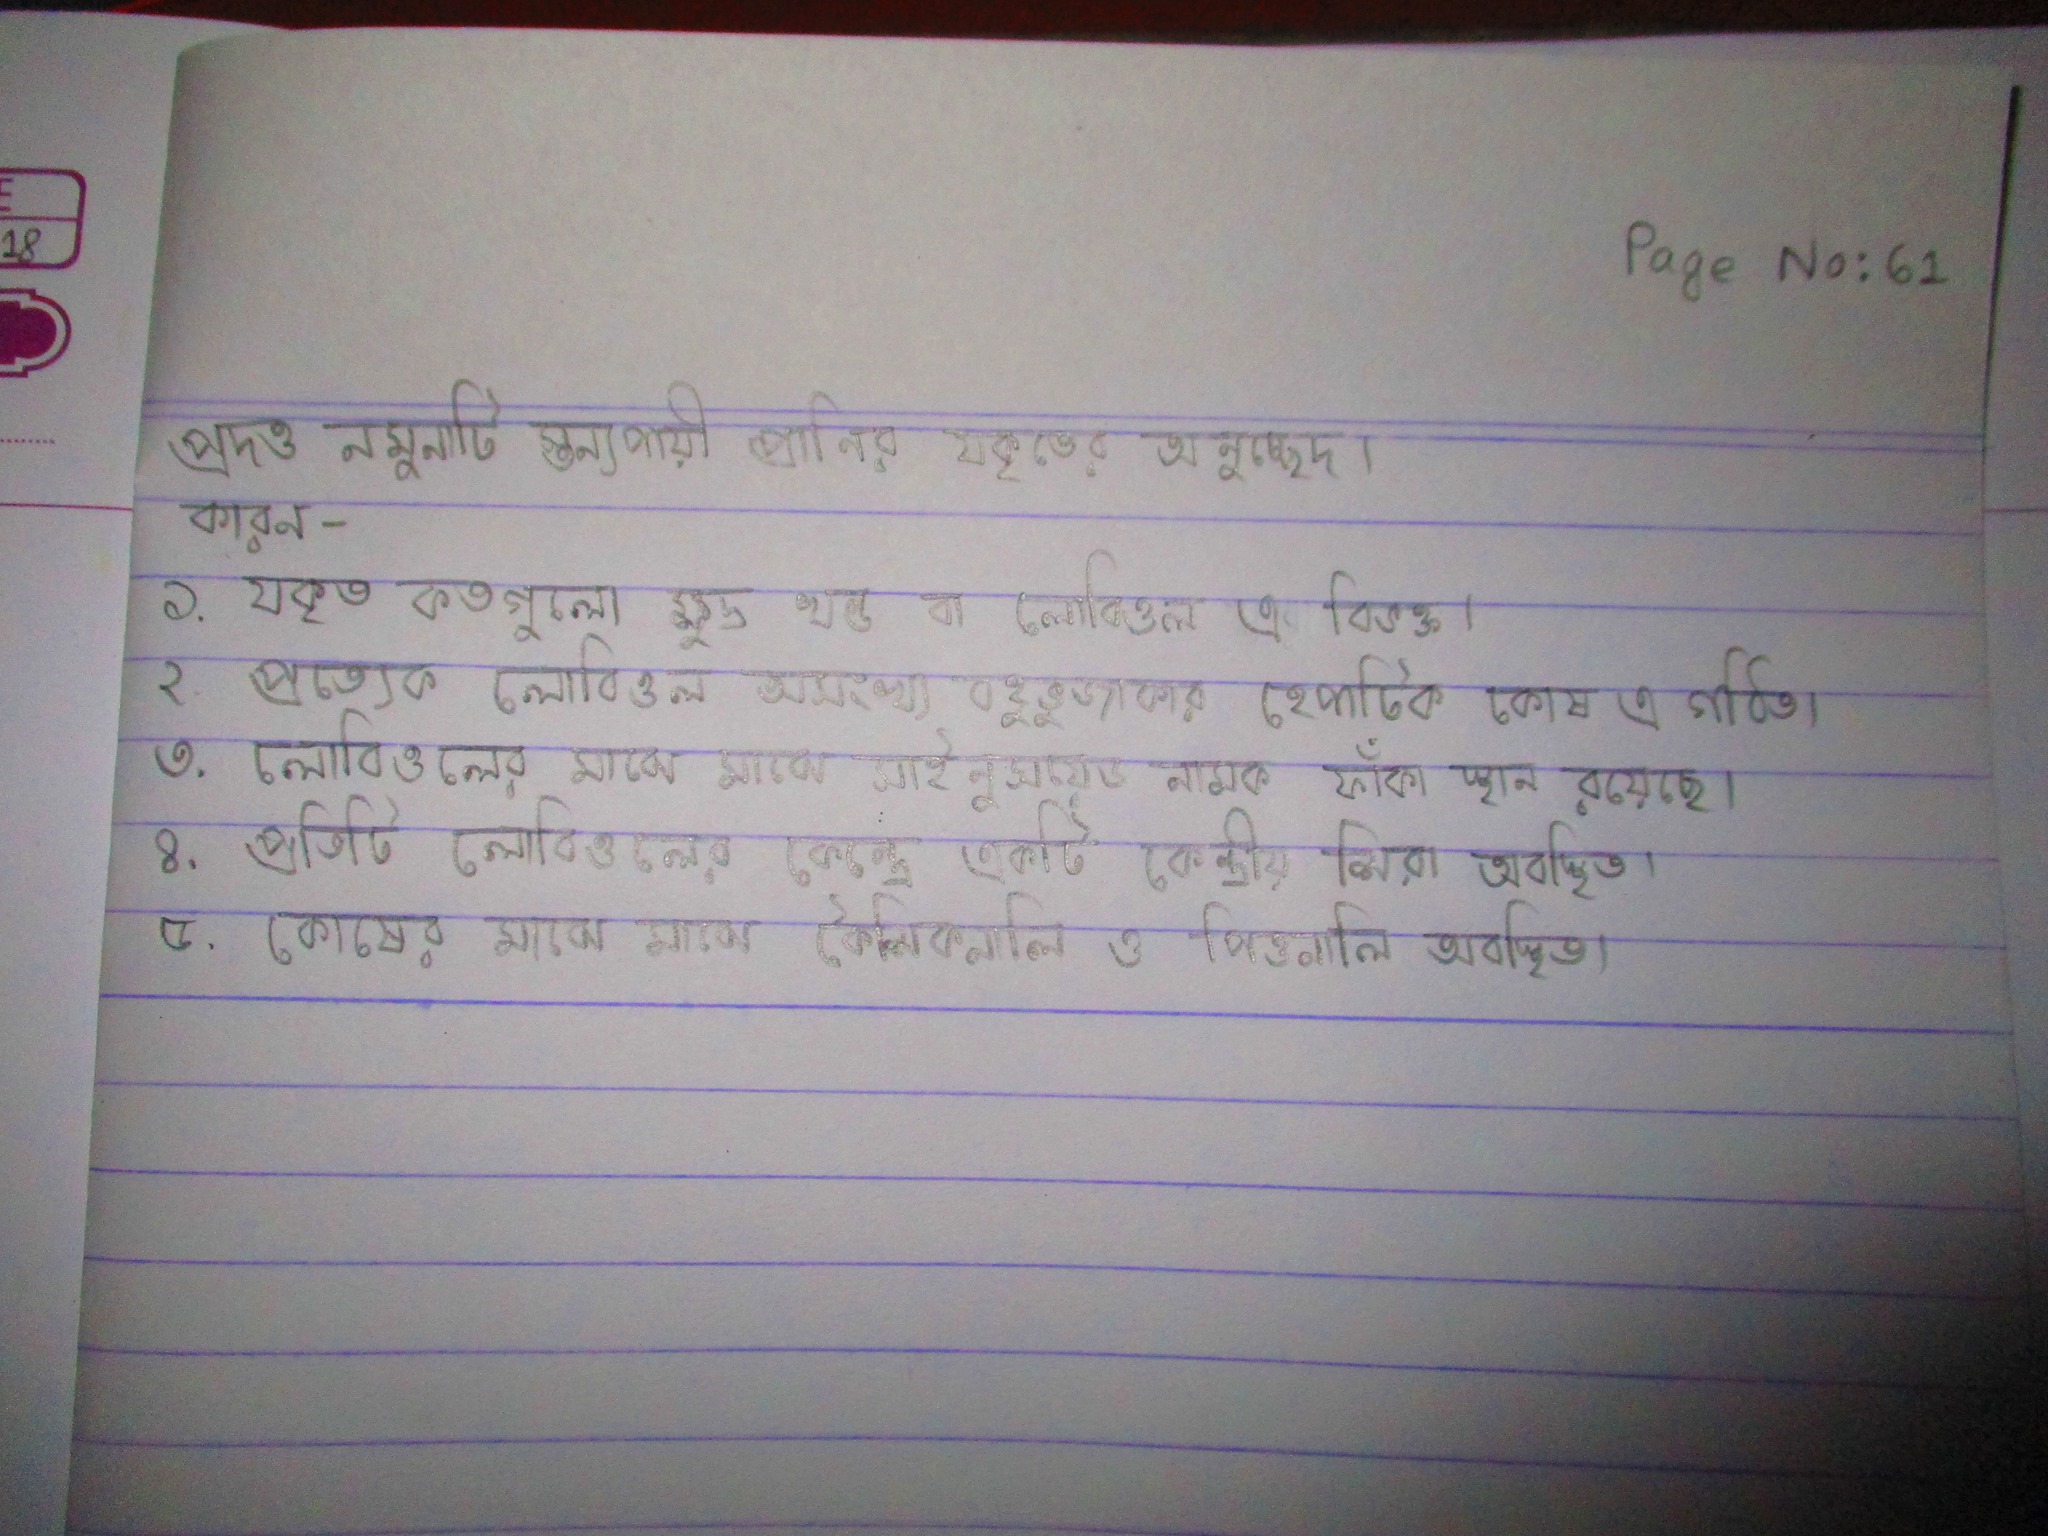 E
18
Page No: 61
প্রদত্ত নমুনাটি স্তন্যপায়ী প্রানির যকৃতের অনুচ্ছেদ।
কারন-
১. যকৃত কতগুলো ক্ষুদ্র খন্ড বা লোবিওল এ বিভক্ত।
২. প্রত্যেক লোবিওল অসংখ্য বহুভুজাকার হেপাটিক কোষ এ গঠিত।
৩. লোবিওলের মাঝে মাঝে সাইনুসয়েড নামক ফাঁকা স্থান রয়েছে।
৪. প্রতিটি লোবিওলের কেন্দ্রে একটি কেন্দ্রীয় শিরা অবস্থিত।
৫. কোষের মাঝে মাঝে কৈশিকনালি ও পিত্তনালি অবস্থিত।